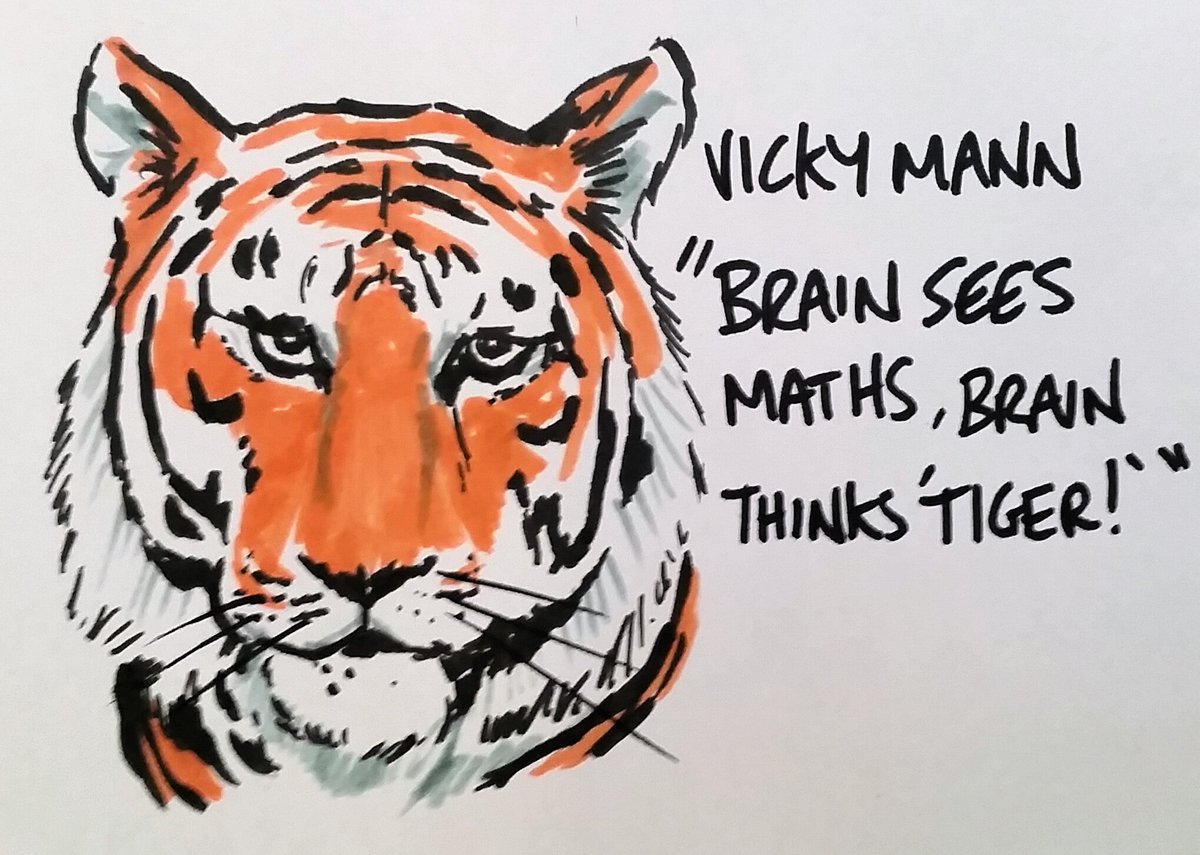 VICKY MANN
"BRAIN SEES
MATHS, BRAIN
THINKS 'TIGER!'"